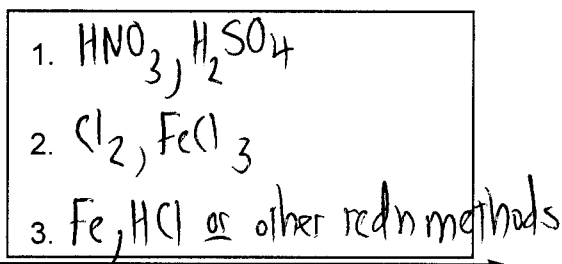 1. HNO3, H2SO4
2. Cl2, FeCl3
3. Fe, HCl or other redn methods